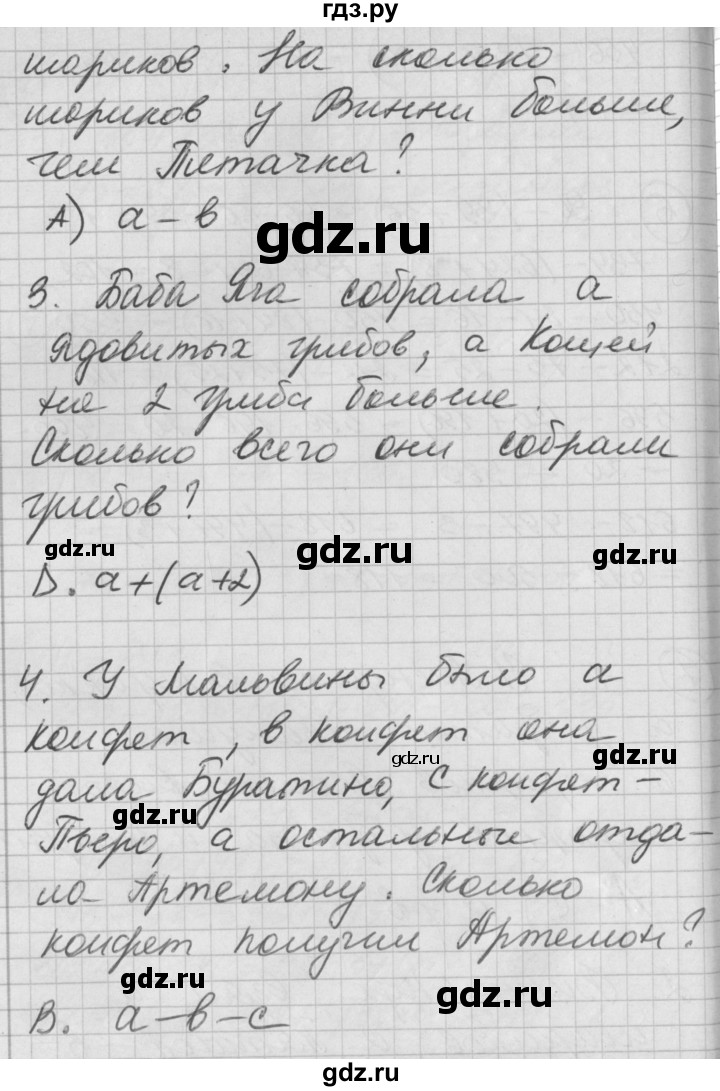 гдз.ру
шариков. На сколько
шариков у Винни больше,
чем Пятачка?
А) а – в
gdz.ru
3. Баба Яга собрала а
ядовитых грибов, а Кощей
на 2 гриба больше.
Сколько всего они собрали
грибов?
gdz.ru
gdz.ru
gdz.ru
D. а+(а+2)
4. У Мальвины было а
конфет, в конфет она
gdz.ru
gdz.ru
дала Буратино, с конфет –
gdz.ru
Пьеро, а остальные отда–
ла Артемону. Сколько
конфет получил Артемон?
gdz.ru
gdz.ru
В. а–в–с
gdz.ru